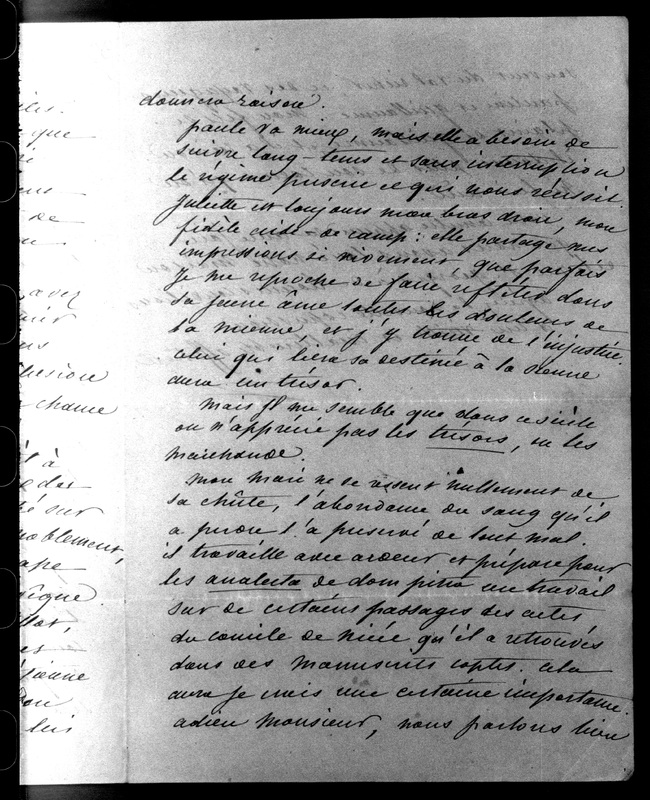 donnera raison.
paule va mieux, mais elle a besoin de
suivre long-tems et sans interruption
le régime prescrit ce qui nous réussit.
Juliette est toujours mon bras droit, mon
fidèle aide-de-camp : elle partage mes
impressions si vivement, que parfois
Je me reproche de faire refléter dans
sa jeune âme toutes les douleurs de
la mienne, et j'y trouve de l'injustice.
celui qui liera sa destinée à la sienne
aura un trésor.
Mais Il me semble que dans ce siècle
on n'apprécie pas les trésors, on les
marchande.
Mon mari ne se ressent nullement de
sa chûte, l'abondance du sang qu'il
a perdu l'a préservé de tout mal.
il travaille avec ardeur et prépare pour
les analecta de dom pitra un travail
sur de certains passages des actes
du concile de nicée qu'il a retrouvés
dans des manuscrits coptes. cela
aura je crois une certaine importance.
adieu Monsieur, nous parlons bien
que
de
avez
chance
à
sur
noblement,
et
lui